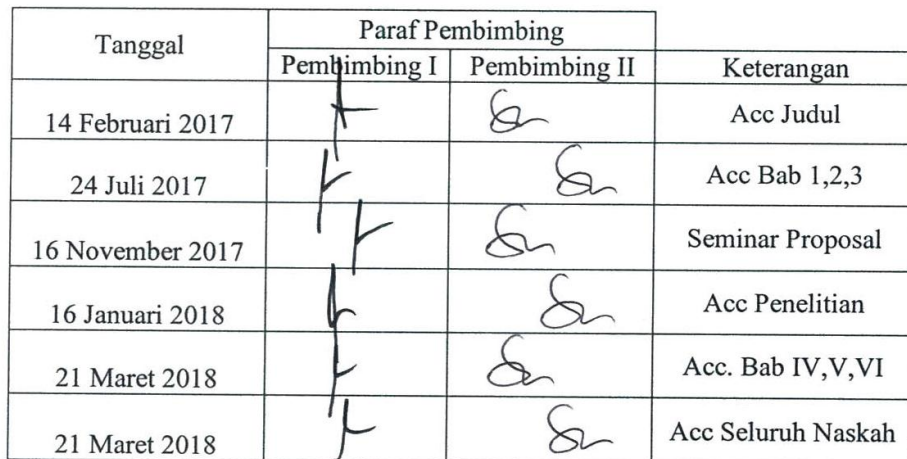 Tanggal Paraf Pembimbing
Pembimbing I Pembimbing II Keterangan
14 Februari 2017 Acc Judul
24 Juli 2017 Acc Bab 1,2,3
16 November 2017 Seminar Proposal
16 Januari 2018 Acc Penelitian
21 Maret 2018 Acc. Bab IV,V,VI
21 Maret 2018 Acc Seluruh Naskah